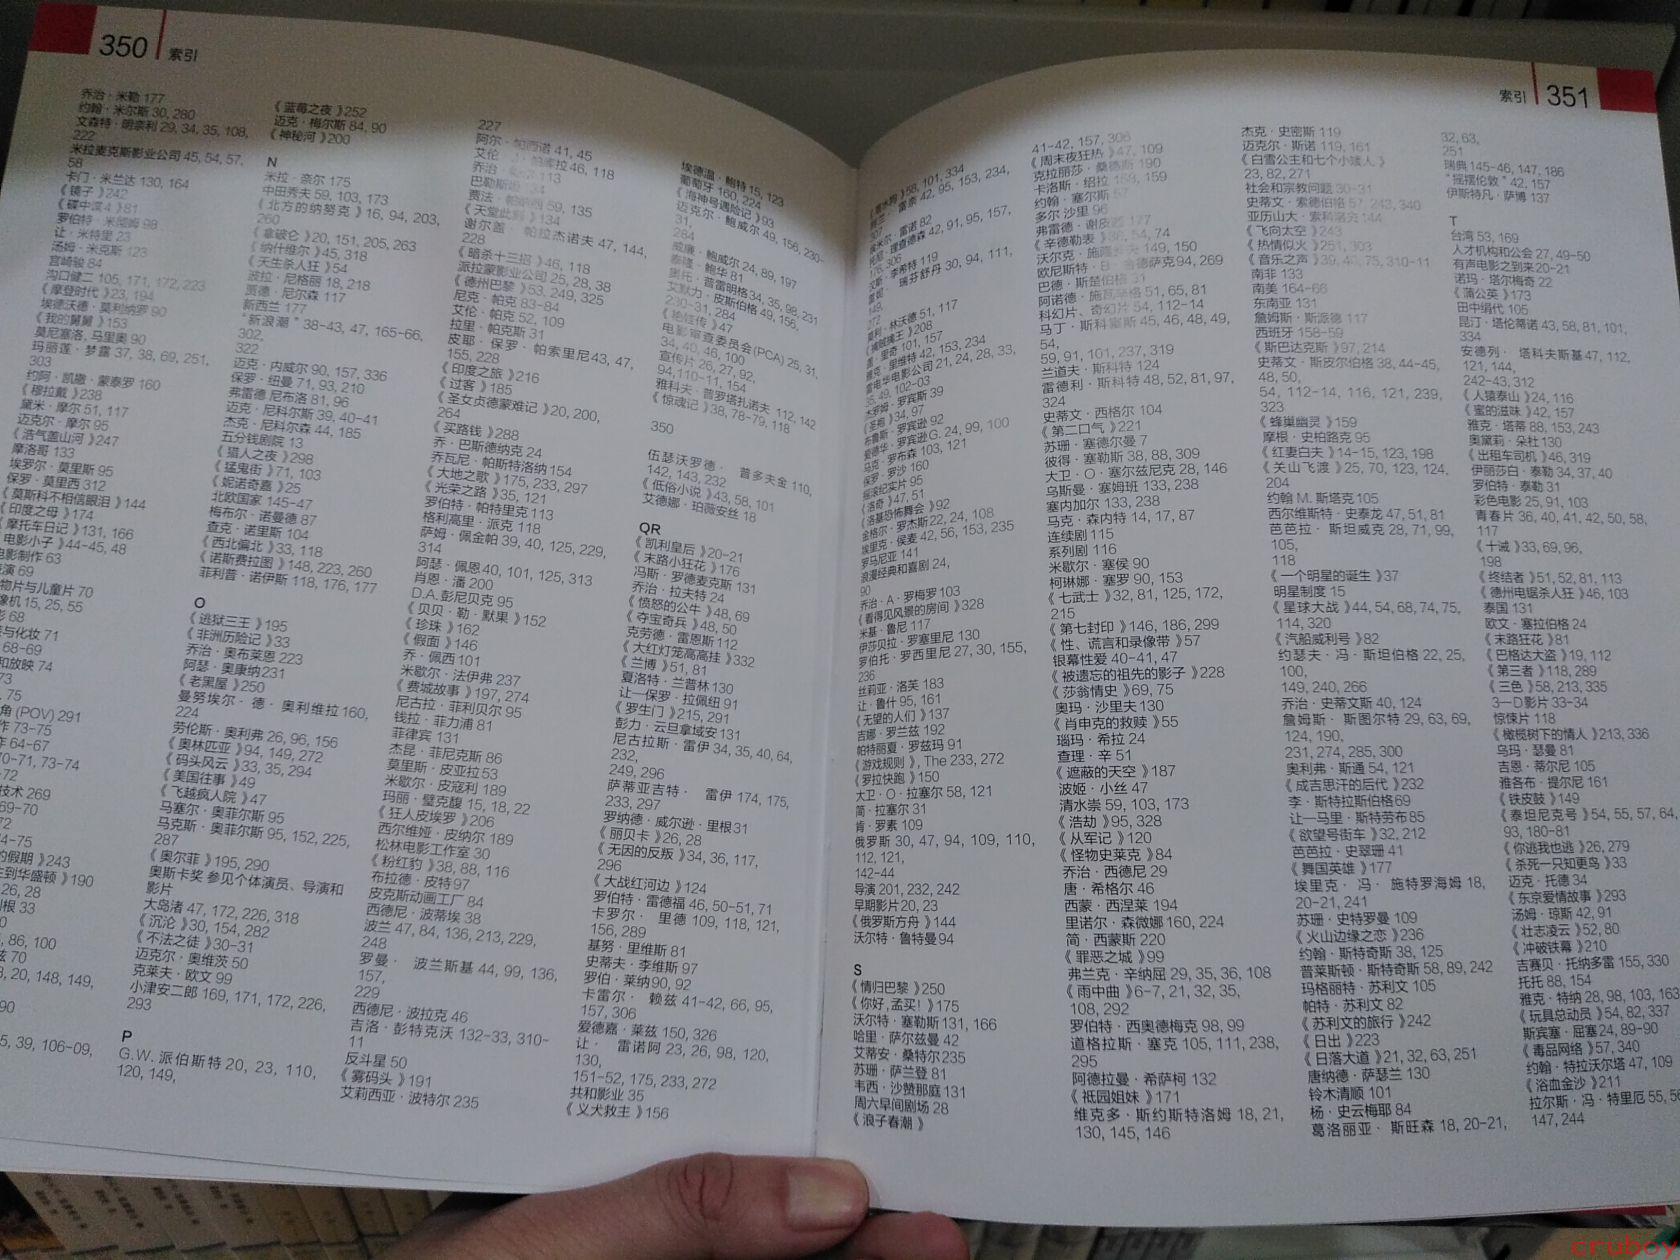 350
索引
乔治·米勒 177
约翰·米尔斯 30, 280
文森特·明奈利 29, 34, 35, 108,
222
米拉麦克斯影业公司 45, 54, 57,
58
卡门·米兰达 130, 164
《镜子》242
《碟中谍4》81
罗伯特·米彻姆 98
让·米特里 23
汤姆·米克斯 123
宫崎骏 84
沟口健二 105, 171, 172, 223
《摩登时代》23, 194
埃德沃德·莫利纳罗 90
《我的舅舅》153
莫尼塞洛, 马里奥 90
玛丽莲·梦露 37, 38, 69, 251,
303
约阿·凯撒·蒙泰罗 160
《穆拉戴》238
黛米·摩尔 51, 117
迈克尔·摩尔 95
《浩气盖山河》247
摩洛哥 133
埃罗尔·莫里斯 95
保罗·莫里西 312
《莫斯科不相信眼泪》144
《印度之母》174
《摩托车日记》131, 166
电影小子》44-45, 48
电影制作 63
演 69
物片与儿童片 70
像机 15, 25, 55
影 68
与化妆 71
68-69
和放映 74
73
, 75
角 (POV) 291
作 73-75
64-67
70-71, 73-74
-72
技术 269
69-70
72
4-75
的假期》243
生到华盛顿》190
26, 28
根 33
, 86, 100
70
8, 20, 148, 149,
90
5, 39, 106-09,
《蓝莓之夜》252
迈克·梅尔斯 84, 90
《神秘河》200
N
米拉·奈尔 175
中田秀夫 59, 103, 173
《北方的纳努克》16, 94, 203,
260
《拿破仑》20, 151, 205, 263
《纳什维尔》45, 318
《天生杀人狂》54
波拉·尼格丽 18, 218
贾德·尼尔森 117
新西兰 177
“新浪潮”38-43, 47, 165-66,
302,
322
迈克·内威尔 90, 157, 336
保罗·纽曼 71, 93, 210
弗雷德 尼布洛 81, 96
迈克·尼科尔斯 39, 40-41
杰克·尼科尔森 44, 185
五分钱剧院 13
《猎人之夜》298
《猛鬼街》71, 103
《妮诺奇嘉》25
北欧国家 145-47
梅布尔·诺曼德 87
查克·诺里斯 104
《西北偏北》33, 118
《诺斯费拉图》148, 223, 260
菲利普·诺伊斯 118, 176, 177
O
《逃狱三王》195
《非洲历险记》33
乔治·奥布莱恩 223
阿瑟·奥康纳231
《老黑屋》250
曼努埃尔·德·奥利维拉160,
224
劳伦斯·奥利弗 26, 96, 156
《奥林匹亚》94, 149, 272
《码头风云》33, 35, 294
《美国往事》49
《飞越疯人院》47
马塞尔·奥菲尔斯 95
马克斯·奥菲尔斯 95, 152, 225,
287
《奥尔菲》195, 290
奥斯卡奖 参见个体演员、导演和
影片
大岛渚 47, 172, 226, 318
《沉沦》30, 154, 282
《不法之徒》30-31
迈克尔·奥维茨 50
克莱夫·欧文 99
小津安二郎 169, 171, 172, 226,
293
P
G.W. 派伯斯特 20, 23, 110,
120, 149,
227
阿尔·帕西诺 41, 45
艾伦·J·帕库拉 46, 118
乔治·113
巴勒斯坦 134
贾法·59, 135
《天堂此刻》134
谢尔盖·帕拉杰诺夫 47, 144,
228
《暗杀十三招》46, 118
派拉蒙影业公司 25, 28, 38
《德州巴黎》53, 249, 325
尼克·帕克 83-84
艾伦·帕克 52, 109
拉里·帕克斯 31
皮耶·保罗·帕索里尼 43, 47,
155, 228
《印度之旅》216
《过客》185
《圣女贞德蒙难记》20, 200,
264
《买路钱》288
乔·巴斯德纳克 24
乔瓦尼·帕斯特洛纳 154
《大地之歌》175, 233, 297
《光荣之路》35, 121
罗伯特·帕特里克 113
格利高里·派克 118
萨姆·佩金帕 39, 40, 125, 229,
314
阿瑟·佩恩 40, 101, 125, 313
肖恩·潘 200
D.A.彭尼贝克 95
《贝贝·勒·默果》152
《珍珠》162
《假面》146
乔·佩西 101
米歇尔·法伊弗 237
《费城故事》197, 274
尼古拉·菲利贝尔 95
钱拉·菲力浦 81
菲律宾 131
杰昆·菲尼克斯 86
莫里斯·皮亚拉 53
米歇尔·皮寇利 189
玛丽·璧克馥 15, 18, 22
《狂人皮埃罗》206
西尔维娅·皮纳尔 189
松林电影工作室 30
《粉红豹》38, 88, 116
布拉德·皮特97
皮克斯动画工厂 84
西德尼·波蒂埃 38
波兰 47, 84, 136, 213, 229,
248
罗曼·波兰斯基 44, 99, 136,
157,
229
西德尼·波拉克 46
吉洛·彭特克沃 132-33, 310-
11
反斗星 50
《雾码头》191
艾莉西亚·波特尔 235
埃德温·鲍特 15, 123
葡萄牙 160, 224
《海神号遇险记》93
迈克尔·鲍威尔 49, 156, 230-
31,
284
威廉·鲍威尔 24, 89, 197
泰隆·鲍华 81
奥托·普雷明格 34, 35, 98, 231
艾默力·皮斯伯格 49, 156,
230-31, 284
《艳姓传》47
电影审查委员会(PCA) 25, 31,
34, 40, 46, 100
宣传片 26, 27, 92,
94,110-11, 154
雅科夫·普罗塔扎诺夫 112, 142
《惊魂记》38, 78-79, 118
350
伍瑟沃罗德·普多夫金 110,
142, 143, 232
《低俗小说》43, 58, 101
艾德娜·珀薇安丝 18
QR
《凯利皇后》20-21
《末路小狂花》176
冯斯·罗德麦克斯 131
乔治·拉夫特 24
《愤怒的公牛》48, 69
《夺宝奇兵》48, 50
克劳德·雷恩斯 112
《大红灯笼高高挂》332
《兰博》51, 81
夏洛特·兰普林 130
让—保罗·拉佩纽 91
《罗生门》215, 291
彭力·云旦拿域安 131
尼古拉斯·雷伊 34, 35, 40, 64,
232,
249, 296
萨蒂亚吉特·雷伊 174, 175,
233, 297
罗纳德·威尔逊·里根31
《丽贝卡》26, 28
《无因的反叛》34, 36, 117,
296
《大战红河边》124
罗伯特·雷德福 46, 50-51, 71
卡罗尔·里德 109, 118, 121,
156, 289
基努·里维斯 81
史蒂夫·李维斯 97
罗伯·莱纳 90, 92
卡雷尔·赖兹 41-42, 66, 95,
157, 306
爱德嘉·莱兹 150, 326
让·雷诺阿 23, 26, 98, 120,
130,
151-52, 175, 233, 272
共和影业 35
《义犬救主》156
索引
351
58, 101, 334
雷奈 42, 95, 153, 234,
307
雷诺 82
理查德森 42, 91, 95, 157,
176, 306
李希特 119
瑞芬舒丹 30, 94, 111,
149,
272
林沃德 51, 117
《捕贼擒王》208
里奇 101, 157
里维特 42, 153, 234
雷电华电影公司 21, 24, 28, 33,
35, 49, 102-03
杰罗姆·罗宾斯 39
《圣袍》34, 97
布鲁斯·罗宾逊 92
爱德华·罗宾逊G. 24, 99, 100
马克·罗布森 103, 121
保罗·罗沙 160
摇滚纪实片 95
《洛奇》47, 51
《洛基恐怖舞会》92
金格尔·罗杰斯22, 24, 108
埃里克·侯麦 42, 56, 153, 235
罗马尼亚 141
浪漫经典和喜剧 24,
90
乔治·A·罗梅罗 103
《看得见风景的房间》328
米基·鲁尼 117
伊莎贝拉·罗塞里尼 130
罗伯托·罗西里尼 27, 30, 155,
236
丝莉亚·洛芙 183
让·鲁什 95, 161
《无望的人们》137
吉娜·罗兰兹 192
帕特丽夏·罗兹玛 91
《游戏规则》, The 233, 272
《罗拉快跑》150
大卫·O·拉塞尔 58, 121
简·拉塞尔 31
肯·罗素 109
俄罗斯 30, 47, 94, 109, 110,
112, 121,
142-44
导演 201, 232, 242
早期影片 20, 23
《俄罗斯方舟》144
沃尔特·鲁特曼94
S
《情归巴黎》250
《你好,孟买!》175
沃尔特·塞勒斯 131, 166
哈里·萨尔兹曼 42
艾蒂安·桑特尔235
苏珊·萨兰登 81
韦西·沙赞那庭 131
周六早间剧场 28
《浪子春潮》
41-42, 157, 306
《周末夜狂热》47, 109
克拉丽莎·桑德斯 190
卡洛斯·绍拉 158, 159
约翰·塞尔斯 57
多尔 沙里 96
弗雷德·谢皮西 177
《辛德勒表》36, 54, 74
沃尔克·施隆多夫 149, 150
欧尼斯特·B·舍德萨克94, 269
巴德·斯楚伯格 31
阿诺德·施瓦辛格 51, 65, 81
科幻片、奇幻片 54, 112-14
马丁·斯科塞斯 45, 46, 48, 49,
54,
59, 91, 101, 237, 319
兰道夫·斯科特 124
雷德利·斯科特 48, 52, 81, 97,
324
史蒂文·西格尔 104
《第二口气》221
苏珊·塞德尔曼 7
彼得·塞勒斯 38, 88, 309
大卫·O·塞尔兹尼克 28, 146
乌斯曼·塞姆班 133, 238
塞内加尔 133, 238
马克·森内特 14, 17, 87
连续剧 115
系列剧 116
米歇尔·塞侯 90
柯琳娜·塞罗 90, 153
《七武士》32, 81, 125, 172,
215
《第七封印》146, 186, 299
《性、谎言和录像带》57
银幕性爱 40-41, 47
《被遗忘的祖先的影子》228
《莎翁情史》69, 75
奥玛·沙里夫 130
《肖申克的救赎》55
瑙玛·希拉 24
查理·辛 51
《遮蔽的天空》187
波姬·小丝 47
清水崇 59, 103, 173
《浩劫》95, 328
《从军记》120
《怪物史莱克》84
乔治·西德尼 29
唐·希格尔 46
西蒙·西涅莱 194
里诺尔·森微娜 160, 224
简·西蒙斯 220
《罪恶之城》99
弗兰克·辛纳屈 29, 35, 36, 108
《雨中曲》6-7, 21, 32, 35,
108, 292
罗伯特·西奥德梅克 98, 99
道格拉斯·塞克 105, 111, 238,
295
阿德拉曼·希萨柯 132
《祗园姐妹》171
维克多·斯约斯特洛姆 18, 21,
130, 145, 146
杰克·史密斯 119
迈克尔·斯诺 119, 161
《白雪公主和七个小矮人》
23, 82, 271
社会和宗教问题 30-31
史蒂文·索德伯格 57, 243, 340
亚历山大·索科洛夫 144
《飞向太空》243
《热情似火》251, 303
《音乐之声》39, 40, 75, 310-11
南非 133
南美 164-66
东南亚 131
詹姆斯·斯派德 117
西班牙 158-59
《斯巴达克斯》97, 214
史蒂文·斯皮尔伯格 38, 44-45,
48, 50,
54, 112-14, 116, 121, 239,
323
《蜂巢幽灵》159
摩根·史柏路克 95
《红妻白夫》14-15, 123, 198
《关山飞渡》25, 70, 123, 124,
204
约翰 M. 斯塔克 105
西尔维斯特·史泰龙 47, 51, 81
芭芭拉·斯坦威克 28, 71, 99,
105,
118
《一个明星的诞生》37
明星制度 15
《星球大战》44, 54, 68, 74, 75,
114, 320
《汽船威利号》82
约瑟夫·冯·斯坦伯格 22, 25,
100,
149, 240, 266
乔治·史蒂文斯 40, 124
詹姆斯·斯图尔特 29, 63, 69,
124, 190,
231, 274, 285, 300
奥利弗·斯通 54, 121
《成吉思汗的后代》232
李·斯特拉斯伯格69
让—马里·斯特劳布85
《欲望号街车》32, 212
芭芭拉·史翠珊 41
《舞国英雄》177
埃里克·冯·施特罗海姆 18,
20-21, 241
苏珊·史特罗曼 109
《火山边缘之恋》236
约翰·斯特奇斯 38, 125
普莱斯顿·斯特奇斯 58, 89, 242
玛格丽特·苏利文 105
帕特·苏利文 82
《苏利文的旅行》242
《日出》223
《日落大道》21, 32, 63, 251
唐纳德·萨瑟兰 130
铃木清顺 101
杨·史云梅耶 84
葛洛丽亚·斯旺森 18, 20-21,
32, 63,
251
瑞典 145-46, 147, 186
“摇摆伦敦” 42, 157
伊斯特凡·萨博 137
T
台湾 53, 169
人才机构和公会 27, 49-50
有声电影之到来 20-21
诺玛·塔尔梅奇 22
《蒲公英》173
田中绢代 105
昆汀·塔伦蒂诺 43, 58, 81, 101,
334
安德列·塔科夫斯基 47, 112,
121, 144,
242-43, 312
《人猿泰山》24, 116
《蜜的滋味》42, 157
雅克·塔蒂 88, 153, 243
奥黛莉·朵杜 130
《出租车司机》46, 319
伊丽莎白·泰勒 34, 37, 40
罗伯特·泰勒 31
彩色电影 25, 91, 103
青春片 36, 40, 41, 42, 50, 58,
117
《十诫》33, 69, 96,
198
《终结者》51, 52, 81, 113
《德州电锯杀人狂》46, 103
泰国 131
欧文·塞拉伯格 24
《末路狂花》81
《巴格达大盗》19, 112
《第三者》118, 289
《三色》58, 213, 335
3—D影片 33-34
惊悚片 118
《橄榄树下的情人》213, 336
乌玛·瑟曼 81
吉恩·蒂尔尼 105
雅各布·提尔尼 161
《铁皮鼓》149
《泰坦尼克号》54, 55, 57, 64,
93, 180-81
《你逃我也逃》26, 279
《杀死一只知更鸟》33
迈克·托德 34
《东京爱情故事》293
汤姆·琼斯 42, 91
《壮志凌云》52, 80
《冲破铁幕》210
吉赛贝·托纳多雷 155, 330
托托 88, 154
雅克·特纳 28, 98, 103, 163
《玩具总动员》54, 82, 337
斯宾塞·屈塞 24, 89-90
《毒品网络》57, 340
约翰·特拉沃尔塔 47, 109
《浴血金沙》211
拉尔斯·冯·特里厄 55, 56
147, 244
cruboy